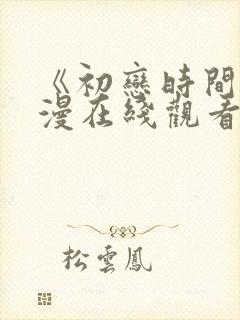 《初戀時間
漫在綫觀看
松雲鳳